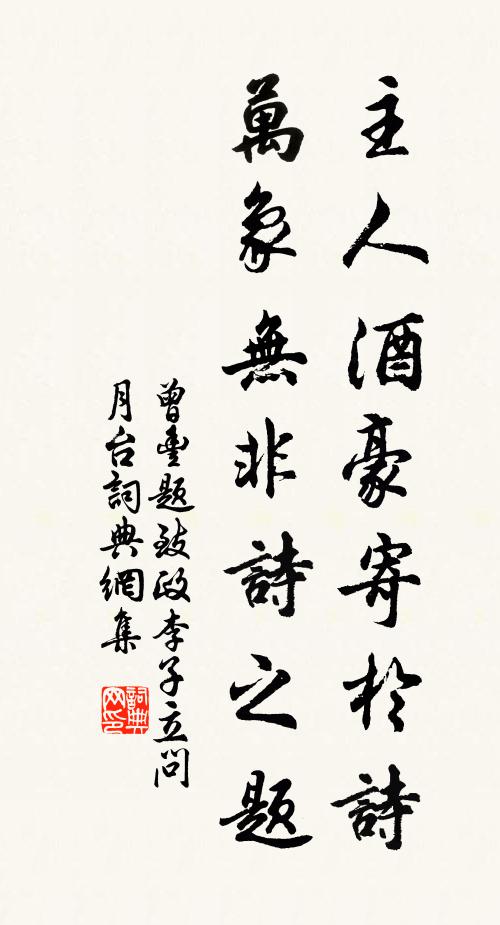 主人酒豪寄於詩
萬象無非詩之題
曾豐題致政李子立問
月台詞典網集
詞典
网印